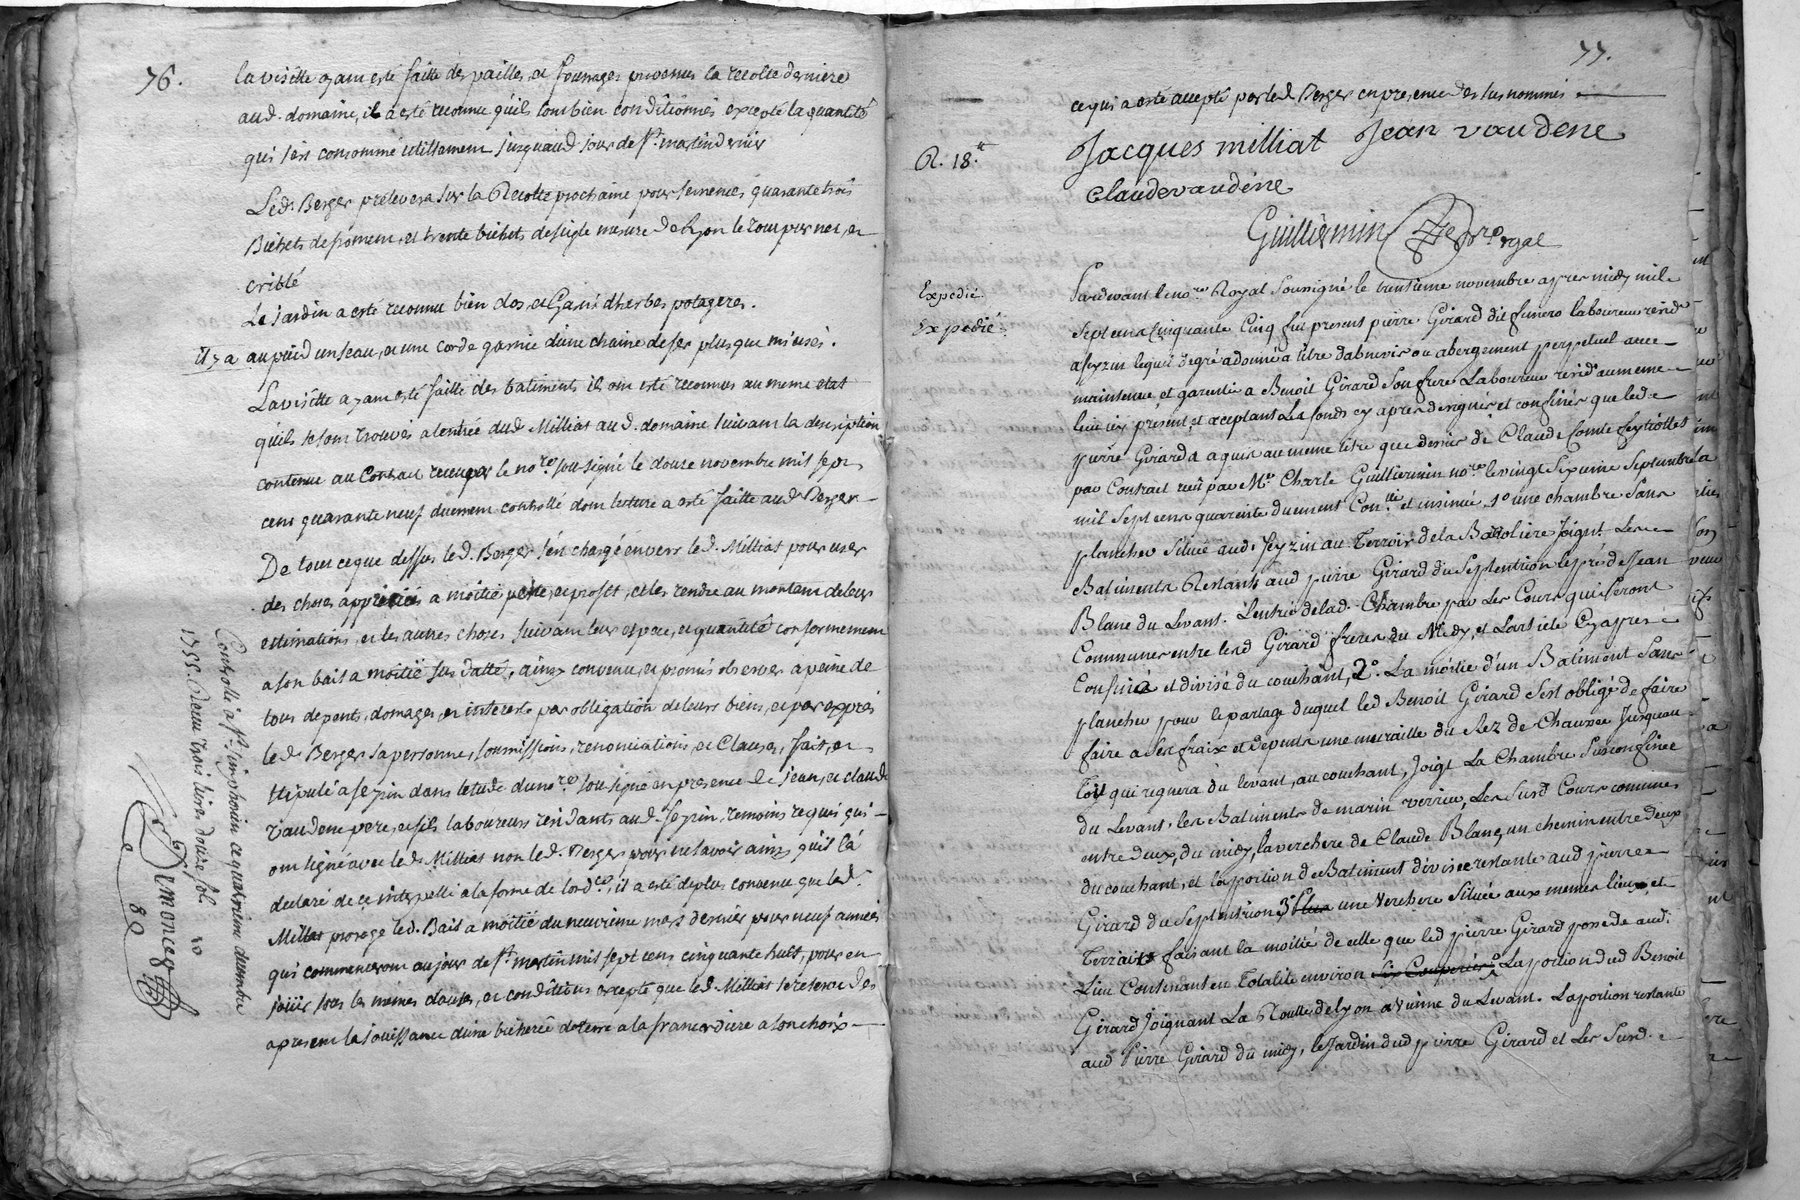 76.
la visitte ayant esté faitte des pailles, et fourrages provenus la recolte derniere
aud. domaine, il a esté reconnu quils sont bien conditionnés excepté la quantité
qui s'est consommé utillement jusquaud jour de st. martin dernier
Led. Berger prelevera sur la Recolte prochaine pour semences quarante trois
Bichets de froment, et trente bichets de seigle mesure de Lyon le tout pur net, et
criblé
Le jardin a esté reconnu bien clos et Garni dherbes potageres.
il y a au puid un seau, et une corde garnie d'une chaine de fer plus que mi usés.
La visitte ayant esté faitte des batiments ils ont esté reconnus au meme etat
quils se sont trouvés a lentrée dud Milliat aud. domaine suivant la description
contenue au Contrat receu par le nore sousigné le douze novembre mil sept
cent quarante neuf duement controllé dont lecture a esté faitte aud Berger
De tout ce que dessus led. Berger s'est chargé envers led. Milliat pour user
des choses appreciées a moitié perte, et profit, et les rendre au montant de leur
estimations et les autres choses suivant leur espece, et quantité conformement
a son bail a moitié sus datté, ainsy convenu, et promis observer a peine de
tous depents, domages, et interets par obligation de leurs biens, et par exprés
led. Berger sa personne, soumissions, renonciations, et Clauses, fait, et
stipulé a feyzin dans letude du nore sousigné en presence de jean, et claude
Vaudene pere, et fils laboureurs residants aud. feyzin, temoins requis qui
ont signé avec led. Milliat non led. Berger pour ne savoir ainsy quil l'a
declaré de ce interpellé a la forme de lordce, il a esté de plus convenu que led.
Milliat proroge led. Bail a moitié du neuvieme mars dernier pour neuf années
qui commenceront au jour de st. martin mil sept cent cinquante huit, pour en
jouir sous les memes clauses, et conditions excepté que led. Milliat se reserve des
apresent la jouissance d'une bicherée de terre a la francardiere a son choix
Controllé a st. simphorien ce quatrieme decembre
1755. Receu trois livres douze sols
77.
ce qui a esté accepté par led Berger en presence des sus nommés
R. 18.
Jacques milliat Jean vaudene
Claude vaudéne
Guilliermin nore royal
Expedié
Expedié
Pardevant le nore Royal sousigné le trentieme novembre apres midy mil
sept cens cinquante Cinq fut present pierre Girard dit finero laboureur resid
a feyzin lequel de gré a donné a titre dabenevis ou abergement perpetuel avec
maintenue et garentie a Benoit Girard son frere Laboureur resid. au meme
lieu icy présent, et aceptant Les fonds cy apres designés et confinés que led
pierre Girard a aquis au meme titre que dessus de Claude Comte feytiolles
par Contract receu par Mre Charle Guilliermin nore le vingt Sixieme Septembre
mil Sept cens quarente duement Conllé et insinué 1o une chambre Sans
plancher Situee aud. feyzin au Terroir de la Barolière Joignt Les
Batiments Restants aud pierre Girard du Septentrion le pré de Jean
Blanc du Levant. L'entrée delad. Chambre par Les Cours qui seront
Communes entre lesd Girard freres du Midy, et L'article Cy apres
Confiné et divisé du couchant, 2o. La moitié d'un Batiment Sans
plancher pour le partage duquel led Benoit Girard s'est obligé de faire
faire a Ses fraix et depends une muraille du Rez de Chaussée Jusqueau
Toit qui regnera du levant, au couchant, Joigt La Chambre Susconfinée
du Levant. les Batiments de marin verrier, Les Susd Cours communes
entre deux, du midy, la verchere de Claude Blanc, un chemin entre deux
du couchant, et la portion de Batiment divisée restante aud pierre
Girard du Septentrion 3o une Verchere Située aux memes lieux, et
Terrait faisant la moitié de celle que led pierre Girard possede aud.
Lieu Contenant en Totalité environ Six Couperées La portion dud Benoit
Girard Joignant La Routte de lyon a Vienne du Levant. La portion restante
aud Pierre Girard du midy, le Jardin dud pierre Girard et Les Susd.